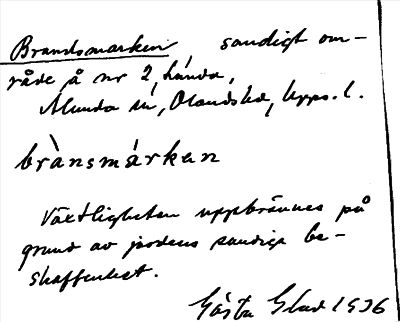 Brandsmarken sandigt om-
råde å nr 2, Lunda,
Alunda sn, Olandshd, Upps. l.
brànsmárken
Växtligheten uppbrännes på
grund av jordens sandiga be-
skaffenhet.
Gösta Glad 1936